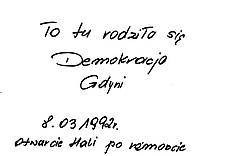 To tu rodziła się
Demokracja
Gdyni
8.03.1992r.
otwarcie Hali po remoncie